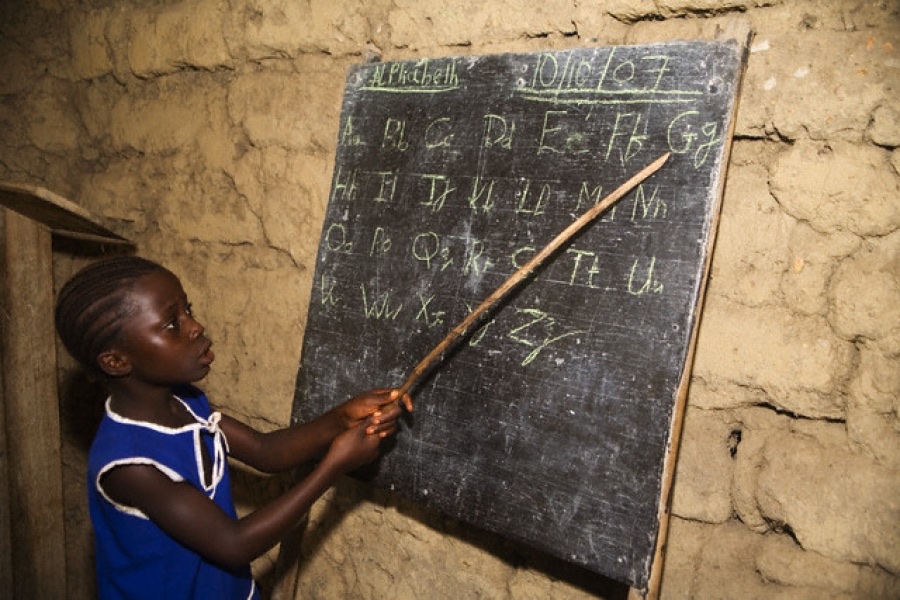 Alphabeth 10/10/07
Aa Bb Cc Dd Ee Ff Gg
Hh Ii Jj Kk Ll Mm Nn
Oo Pp Qq Rr Tt Uu
Ww Xx Zz